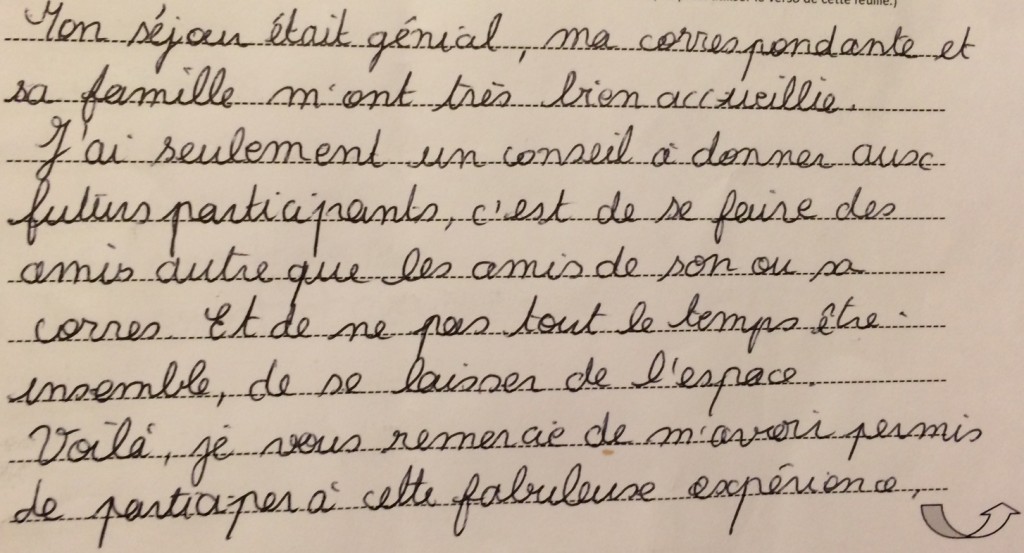 verso de cette feuille.)
Mon séjour était génial, ma correspondante et
sa famille m'ont très bien accueillie.
J'ai seulement un conseil à donner aux
futurs participants, c'est de se faire des
amis autre que les amis de son ou sa
corres. Et de ne pas tout le temps être
ensemble, de se laisser de l'espace.
Voilà, je vous remercie de m'avoir permis
de participer à cette fabuleuse expérience,